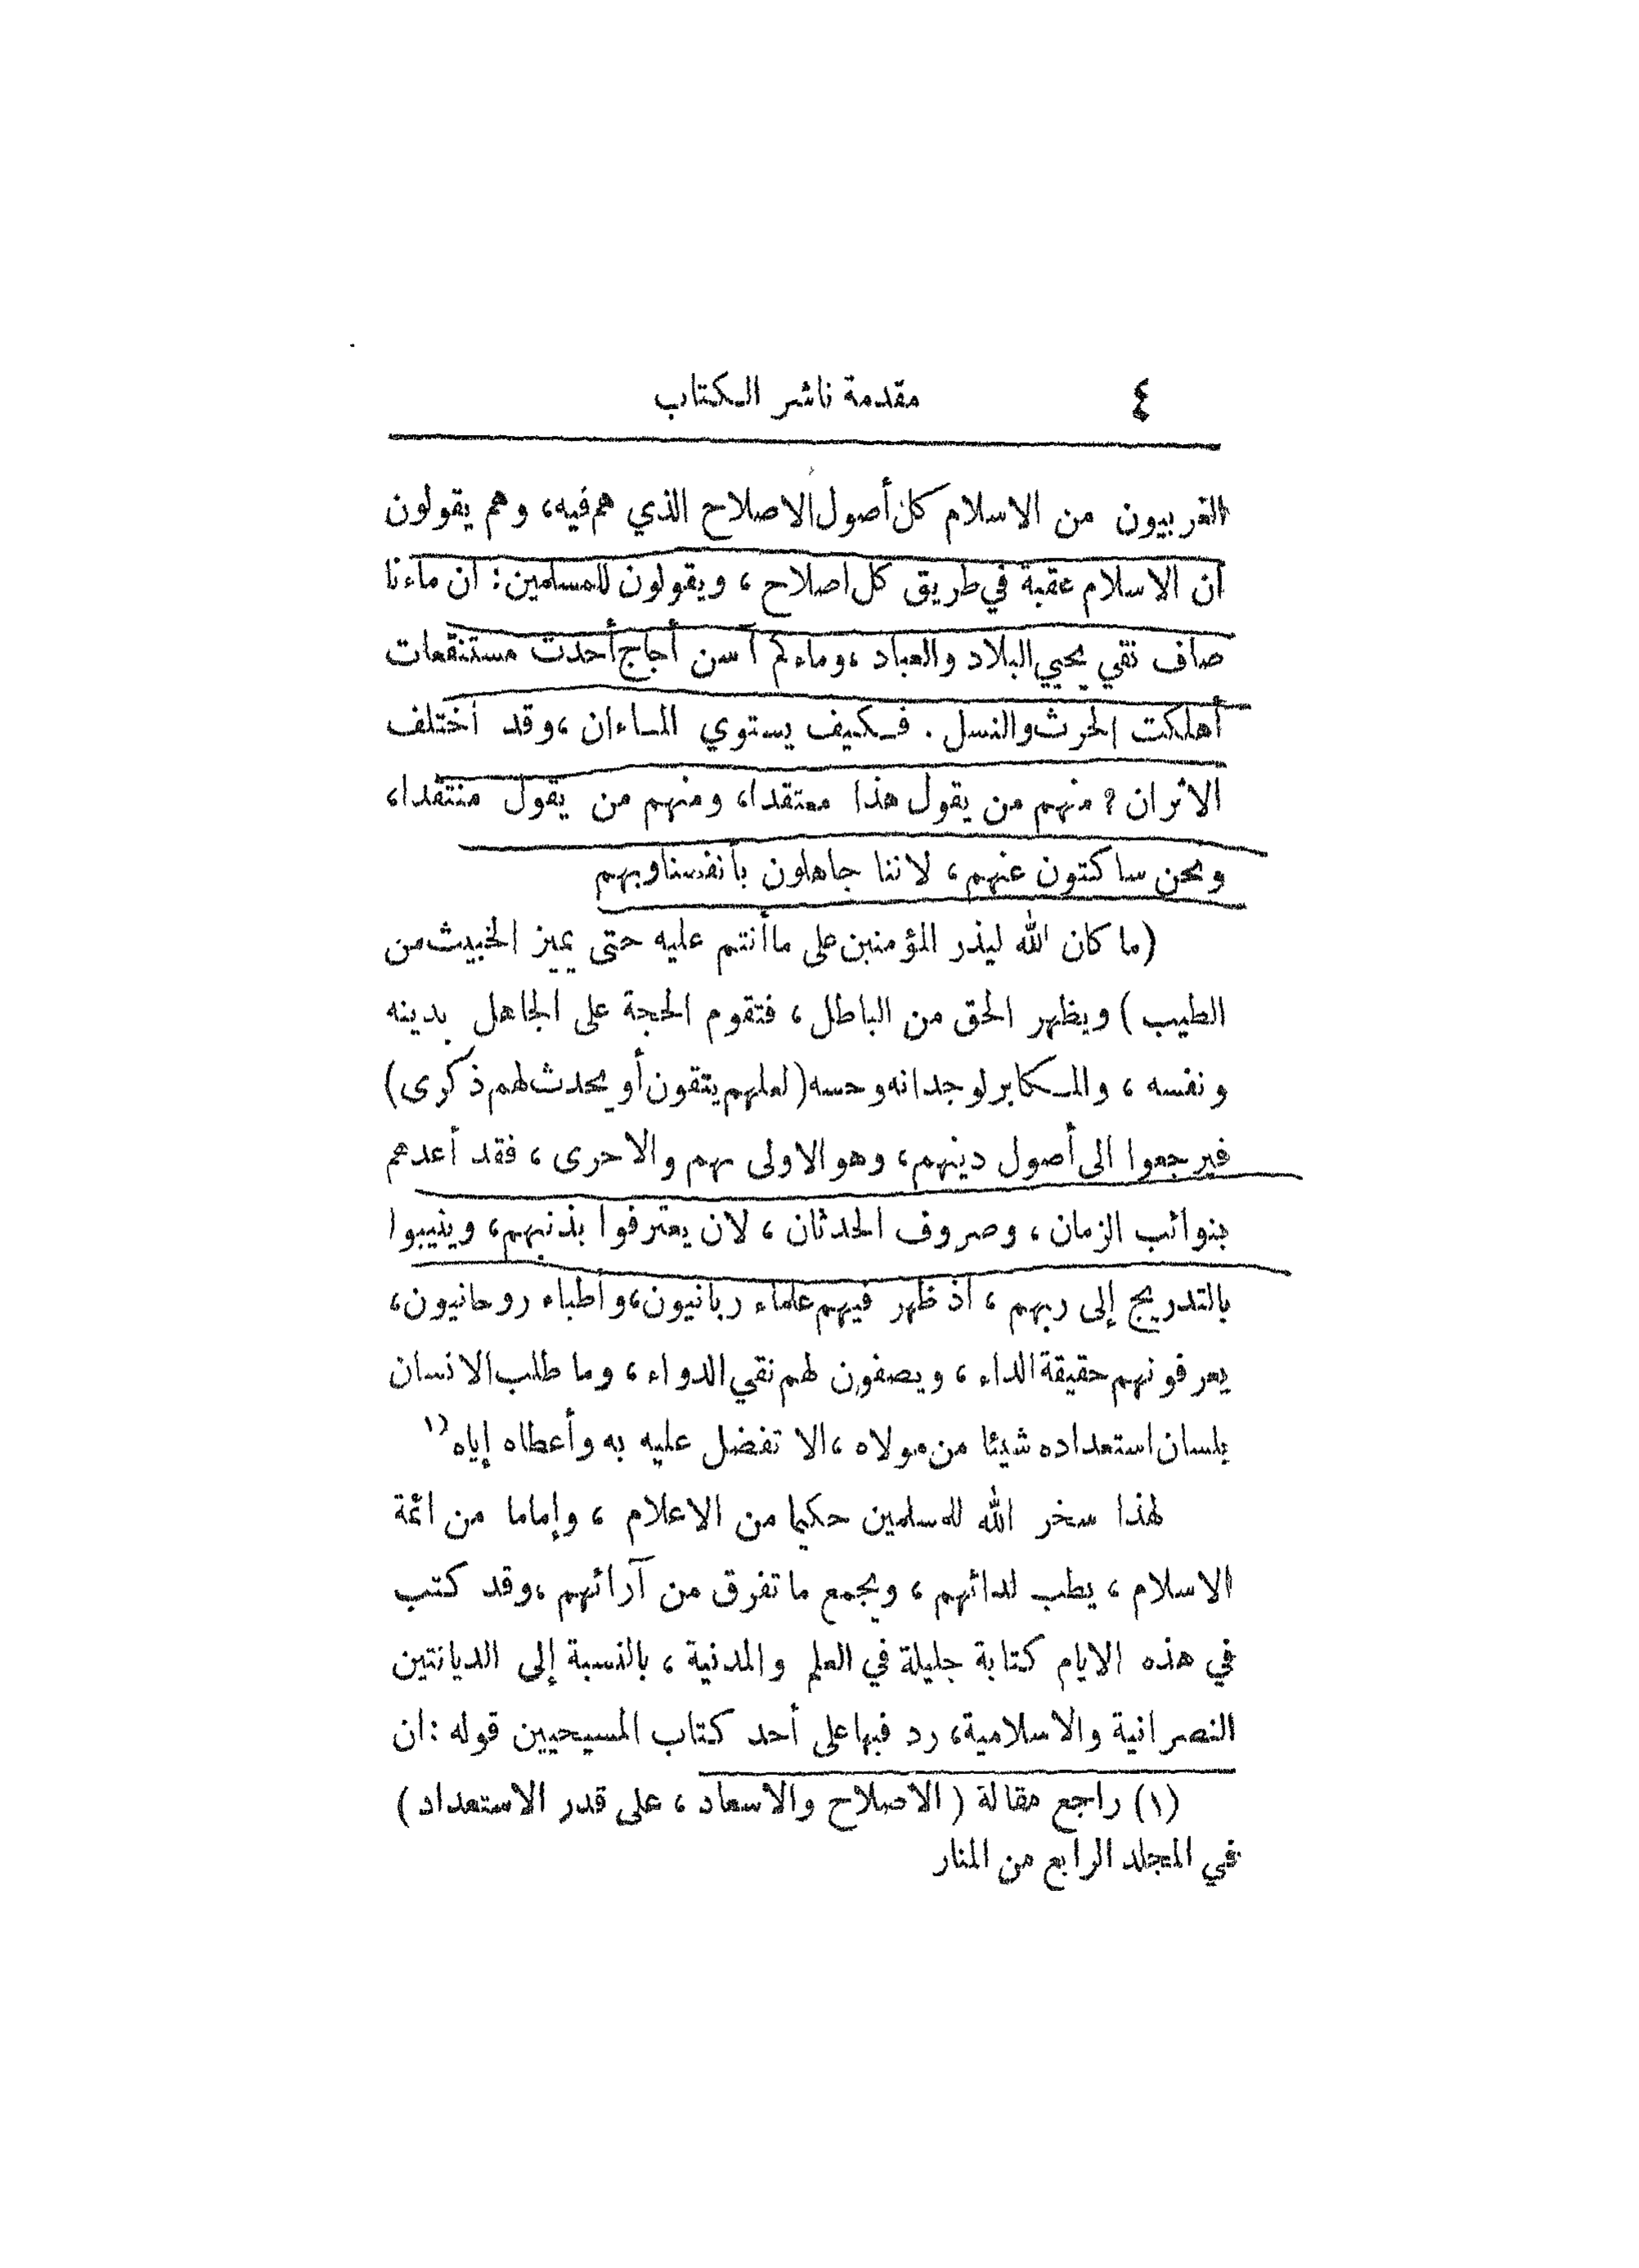 ٤ مقدمة ناشر الكتاب
الغربيون من الاسلام كل أصول الاصلاح الذي هم فيه، وهم يقولون
ان الاسلام عقبة في طريق كل اصلاح، ويقولون للمسلمين: ان ماءنا
صاف نقي يحيي البلاد والعباد، وماءكم آسن أجاج أحدث مستنقعات
أهلكت الحرث والنسل. فكيف يستوي الماءان، وقد اختلف
الاثران؟ منهم من يقول هذا معتقدا، ومنهم من يقول منتقدا،
ونحن ساكتون عنهم، لاننا جاهلون بأنفسنا وبهم
(ما كان الله ليذر المؤمنين على ما أنتم عليه حتى يميز الخبيث من
الطيب) ويظهر الحق من الباطل، فتقوم الحجة على الجاهل بدينه
ونفسه، والمكابر لوجدانه وحسه (لعلهم يتقون أو يحدث لهم ذكرى)
فيرجعوا الى أصول دينهم، وهو الاولى بهم والاحرى، فقد أعدهم
بنوائب الزمان، وصروف الحدثان، لان يعترفوا بذنبهم، وينيبوا
بالتدريج إلى ربهم، اذ ظهر فيهم علماء ربانيون، وأطباء روحانيون،
يعرفونهم حقيقة الداء، ويصفون لهم نقي الدواء، وما طلب الانسان
بلسان استعداده شيئا من مولاه، الا تفضل عليه به وأعطاه إياه (١
لهذا سخر الله للمسلمين حكيما من الاعلام، وإماما من ائمة
الاسلام، يطب لدائهم، ويجمع ما تفرق من آرائهم، وقد كتب
في هذه الايام كتابة جليلة في العلم والمدنية، بالنسبة إلى الديانتين
النصرانية والاسلامية، رد فيها على أحد كتاب المسيحيين قوله: ان
(١) راجع مقالة (الاصلاح والاسعاد، على قدر الاستعداد)
في المجلد الرابع من المنار